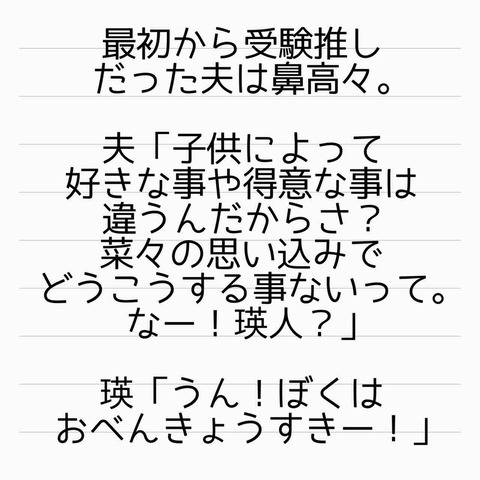 最初から受験推し
だった夫は鼻高々。
夫「子供によって
好きな事や得意な事は
違うんだからさ？
菜々の思い込みで
どうこうする事ないって。
なー！瑛人？」
瑛「うん！ぼくは
おべんきょうすきー！」